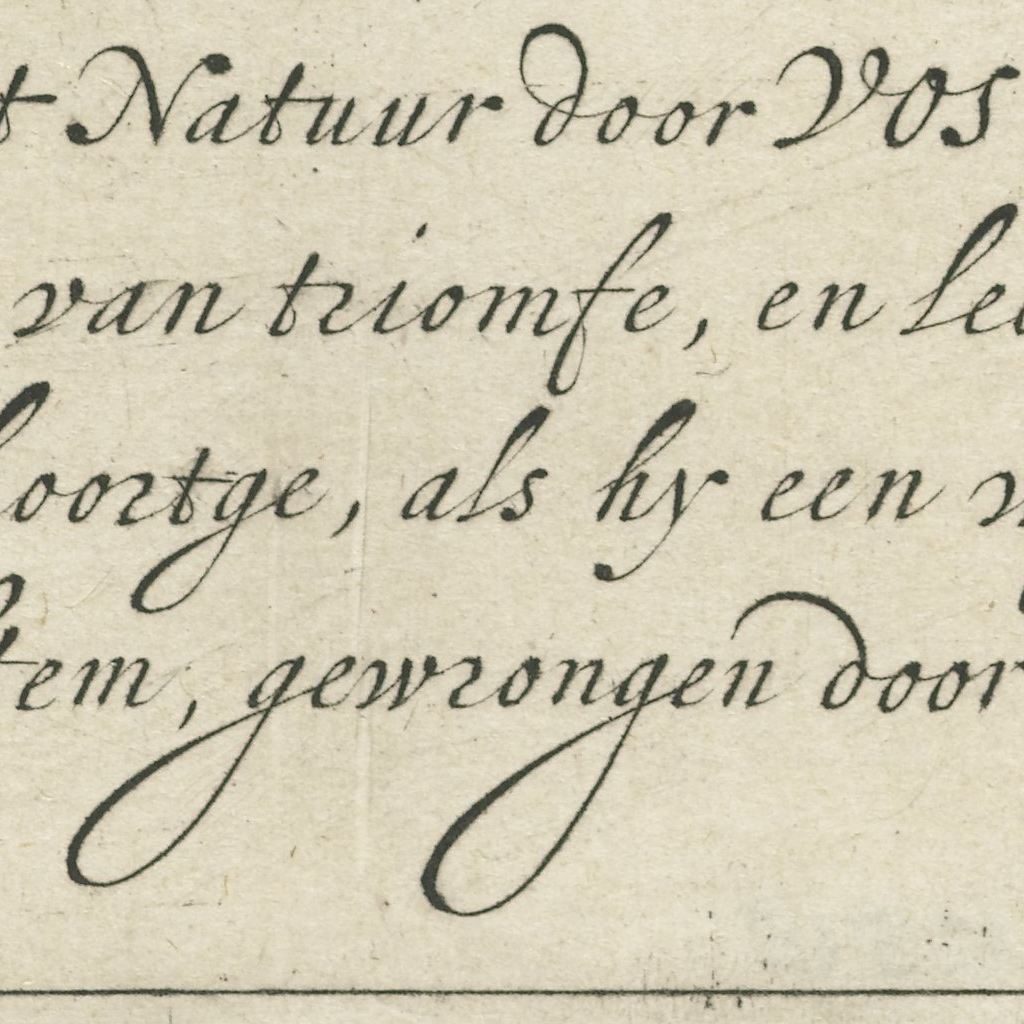 t Natuur door VOS
van triomfe, en le
oortge, als hy een
tem, gewrongen door